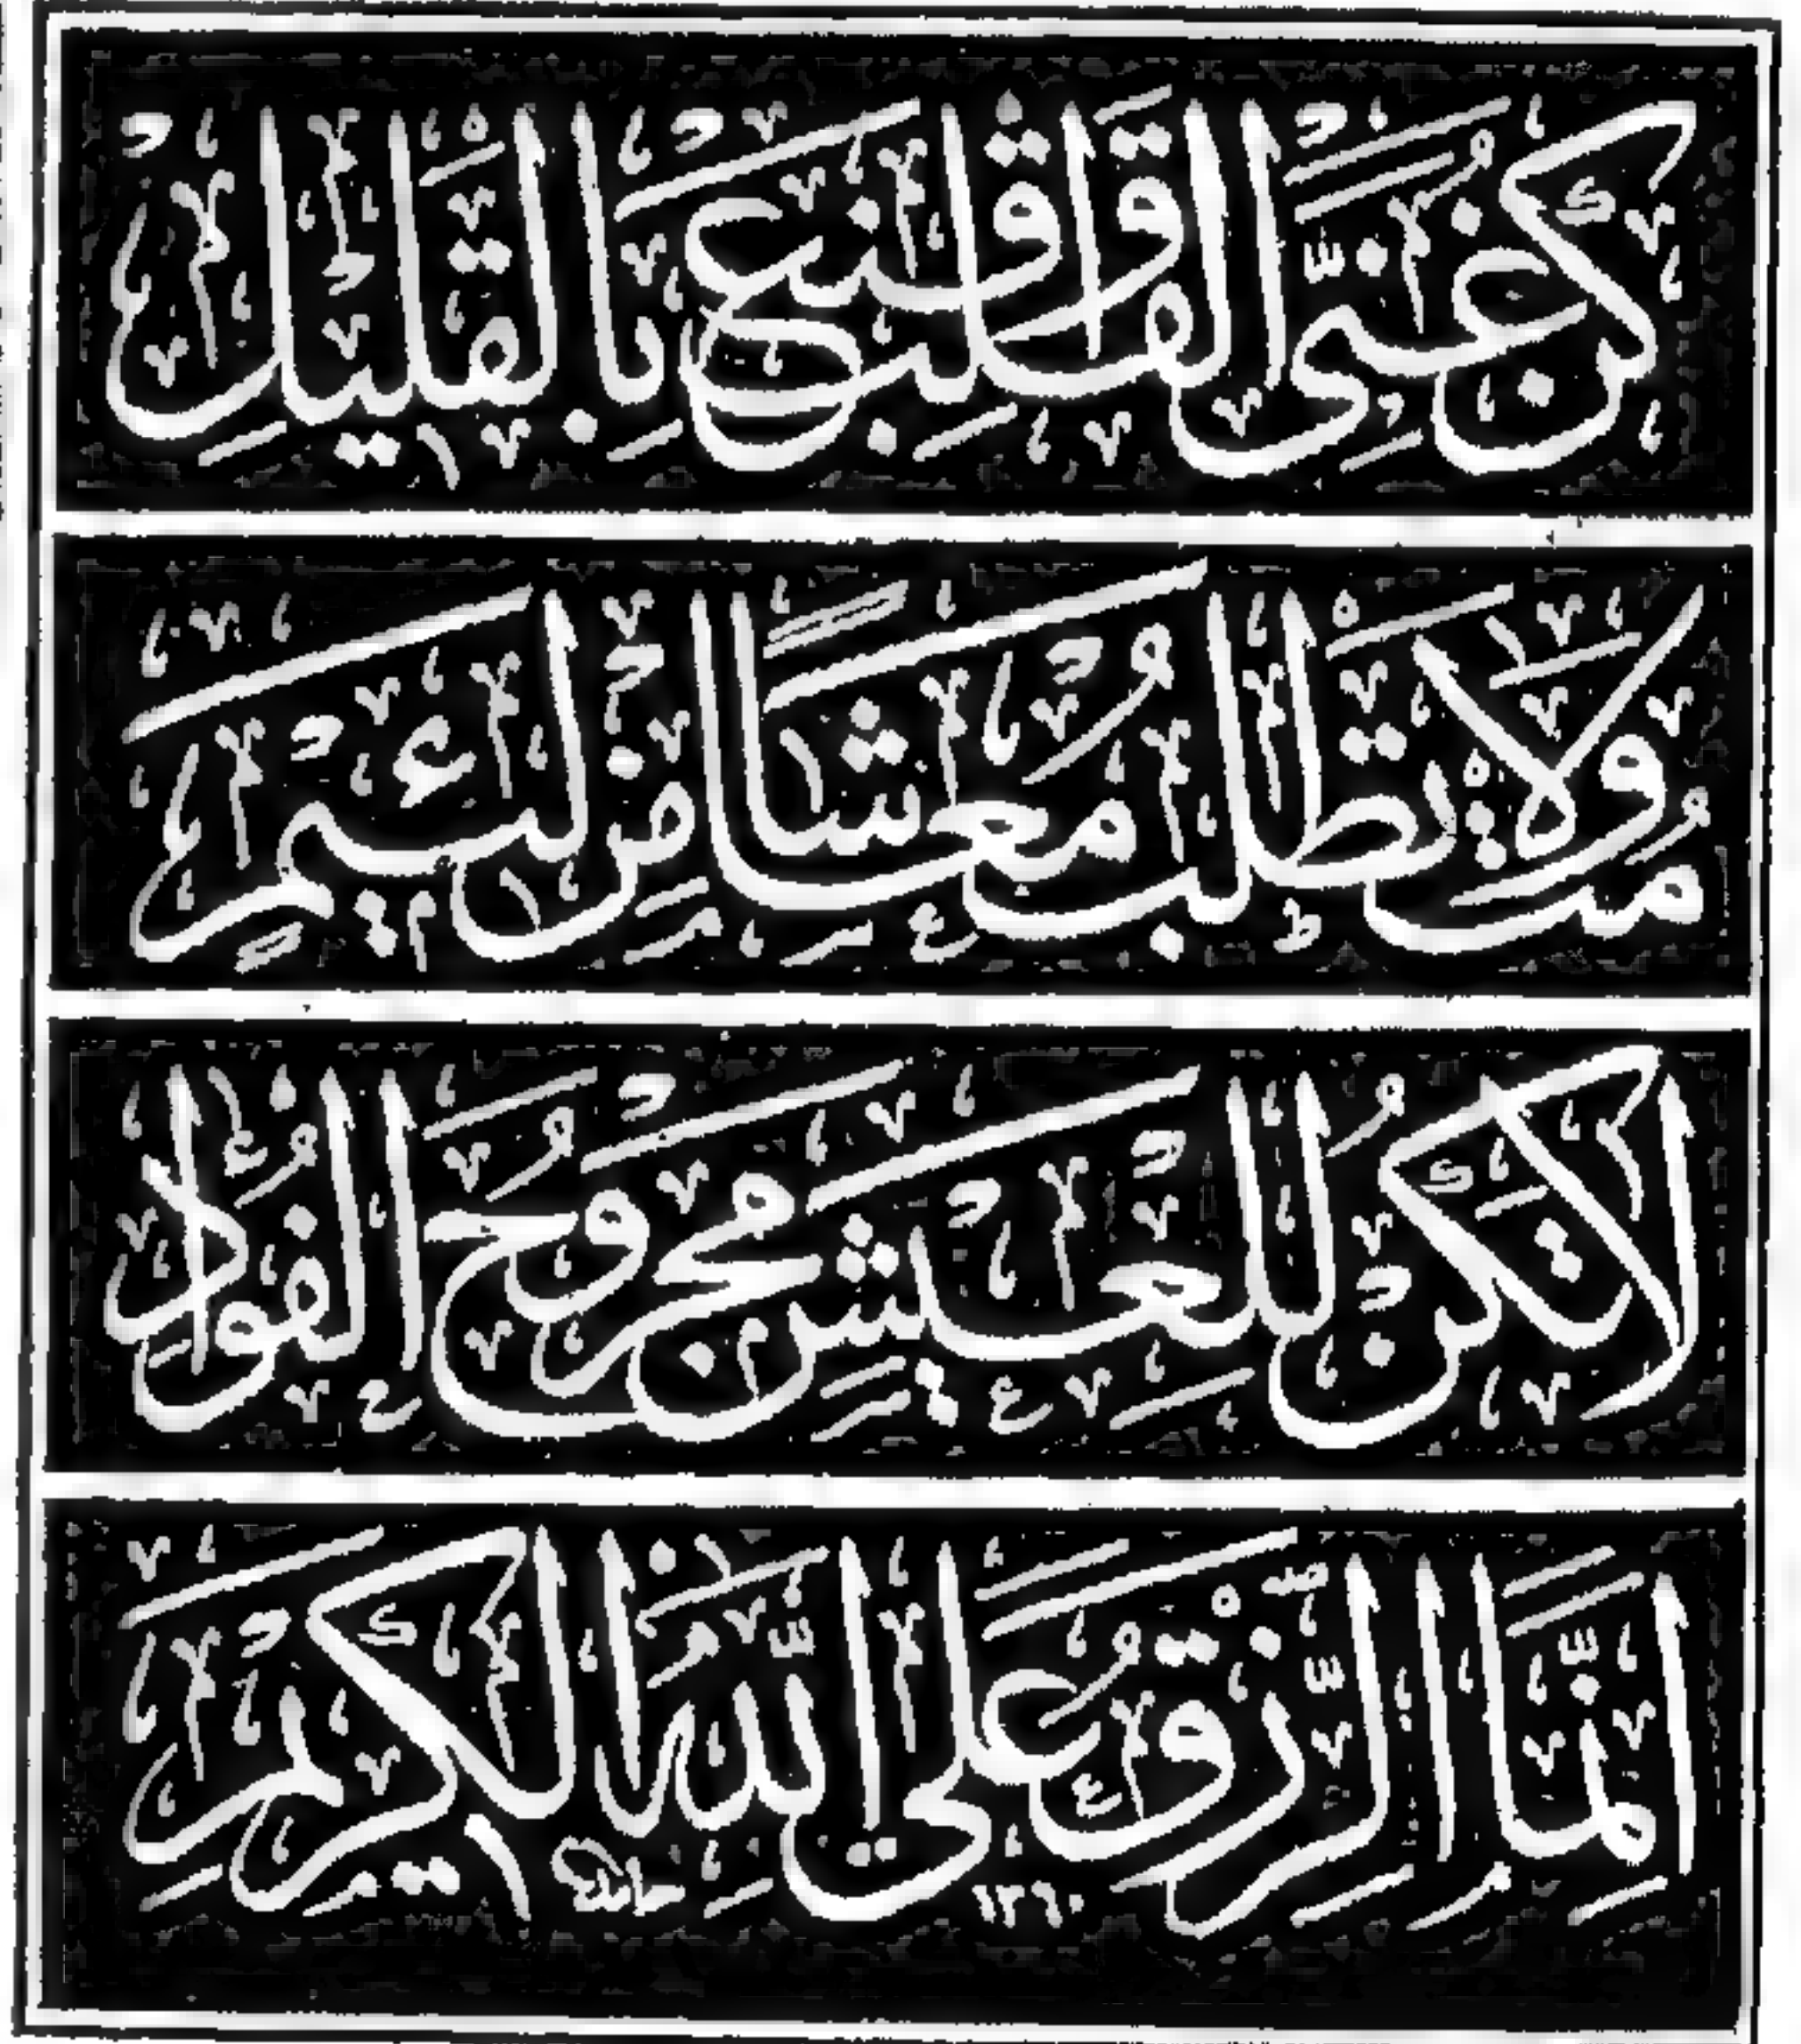 كُنْ غَنِيَّ الْقَلْبِ وَاقْنَعْ بِالْقَلِيلِ
مُتْ وَلَا تَطْلُبْ مَعَاشًا مِنْ لَئِيمٍ
لَا تَكُنْ لِلْعَيْشِ مَجْرُوحَ الْفُؤَادِ
إِنَّمَا الرِّزْقُ عَلَى اللهِ الْكَرِيمِ
حامد ١٣٦٠